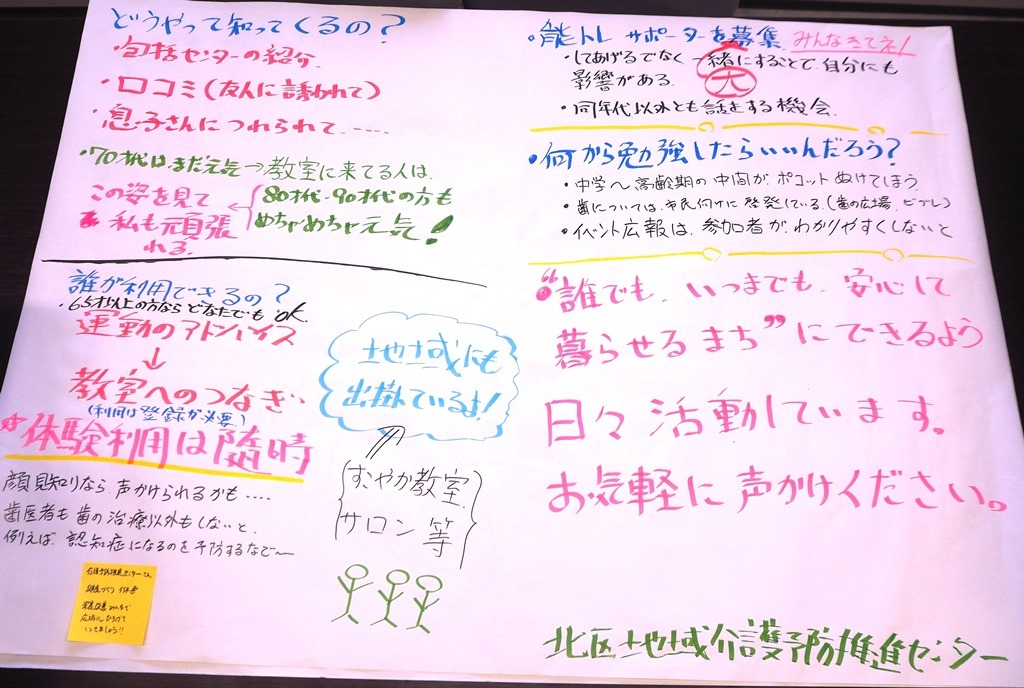 どうやって知ってくるの？
・包括センターの紹介
・口コミ（友人に誘われて）
・息子さんにつれられて‥‥
・70才代はまだ元気→教室に来てる人は
80才代・90才代の方も
めちゃめちゃ元気！
この姿を見て
私も頑張
れる
誰が利用できるの？
・65才以上の方なら どなたでも OK.
運動のアドバイス
↓
教室へのつなぎ
（利用は登録が必要）
☆体験利用は随時
顔見知りなら 声かけられるかも‥‥
歯医者も歯の治療以外もしないと、
例えば、認知症になるのを予防するなど〜
地域にも
出掛けているよ！
すこやか教室
サロン 等
・能トレ サポーターを募集 みんなきてネ！
・してあげるでなく 一緒にすることで、自分にも
影響がある。
大
・同年代以外とも話をする機会
・何から勉強したらいいんだろう？
・中学へ 高齢期の中間が ポコット ぬけてしまう
・歯については、市民向けに啓発している。（歯の広場、ビブレ）
・イベント広報は、参加者が わかりやすくしないと
“誰でも、いつまでも、安心して
暮らせるまち”にできるよう
日々活動しています。
お気軽に声かけください。
北区地域介護予防推進センター